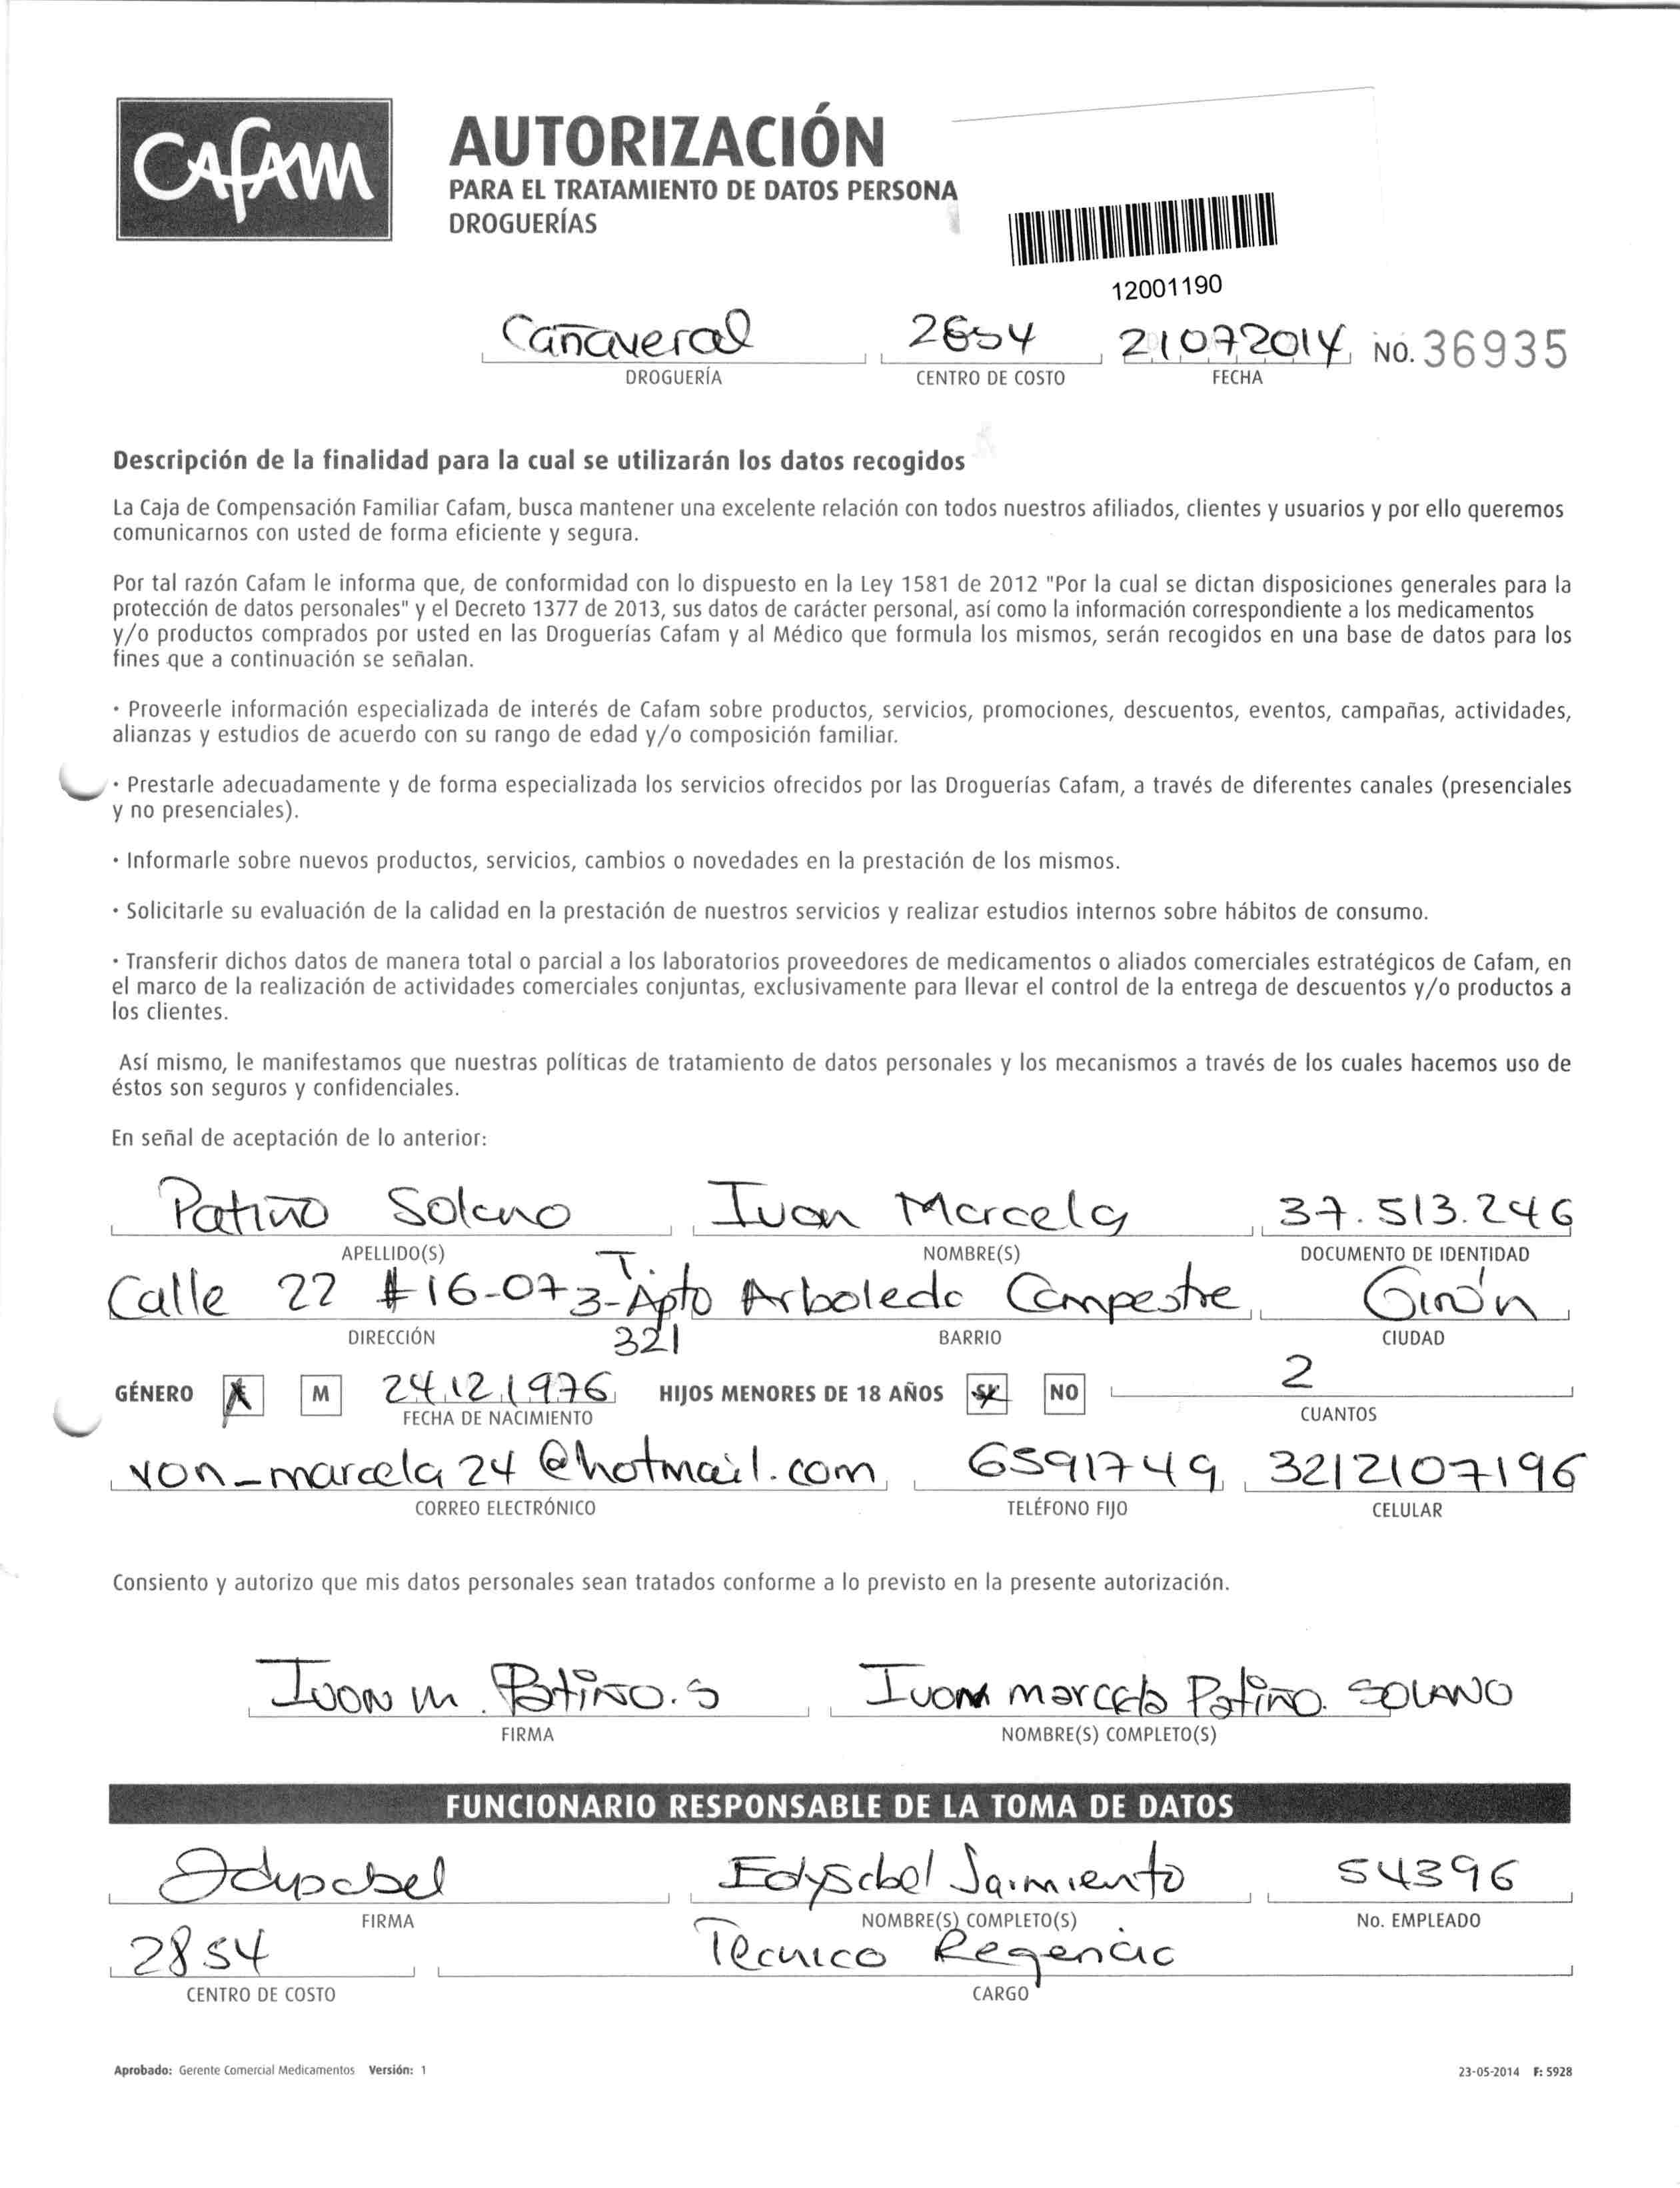 CAFAM
AUTORIZACIÓN
PARA EL TRATAMIENTO DE DATOS PERSONA
DROGUERÍAS
12001190
Cañaveral 2854 21072014 NO. 36935
DROGUERÍA CENTRO DE COSTO FECHA
Descripción de la finalidad para la cual se utilizarán los datos recogidos
La Caja de Compensación Familiar Cafam, busca mantener una excelente relación con todos nuestros afiliados, clientes y usuarios y por ello queremos
comunicarnos con usted de forma eficiente y segura.
Por tal razón Cafam le informa que, de conformidad con lo dispuesto en la Ley 1581 de 2012 "Por la cual se dictan disposiciones generales para la
protección de datos personales" y el Decreto 1377 de 2013, sus datos de carácter personal, así como la información correspondiente a los medicamentos
y/o productos comprados por usted en las Droguerías Cafam y al Médico que formula los mismos, serán recogidos en una base de datos para los
fines que a continuación se señalan.
· Proveerle información especializada de interés de Cafam sobre productos, servicios, promociones, descuentos, eventos, campañas, actividades,
alianzas y estudios de acuerdo con su rango de edad y/o composición familiar.
· Prestarle adecuadamente y de forma especializada los servicios ofrecidos por las Droguerías Cafam, a través de diferentes canales (presenciales
y no presenciales).
· Informarle sobre nuevos productos, servicios, cambios o novedades en la prestación de los mismos.
· Solicitarle su evaluación de la calidad en la prestación de nuestros servicios y realizar estudios internos sobre hábitos de consumo.
· Transferir dichos datos de manera total o parcial a los laboratorios proveedores de medicamentos o aliados comerciales estratégicos de Cafam, en
el marco de la realización de actividades comerciales conjuntas, exclusivamente para llevar el control de la entrega de descuentos y/o productos a
los clientes.
Así mismo, le manifestamos que nuestras políticas de tratamiento de datos personales y los mecanismos a través de los cuales hacemos uso de
éstos son seguros y confidenciales.
En señal de aceptación de lo anterior:
Patiño Solano Ivon Marcela 37.513.246
APELLIDO(S) NOMBRE(S) DOCUMENTO DE IDENTIDAD
Calle 22 #16-07 T. 3-Apto 321 Arboleda Campestre Girón
DIRECCIÓN BARRIO CIUDAD
GÉNERO M 24121976 HIJOS MENORES DE 18 AÑOS SI NO 2
FECHA DE NACIMIENTO CUANTOS
von_marcela24@hotmail.com 6591749 3212107196
CORREO ELECTRÓNICO TELÉFONO FIJO CELULAR
Consiento y autorizo que mis datos personales sean tratados conforme a lo previsto en la presente autorización.
Ivon M. Patiño. S Ivon marcela Patiño. SOLANO
FIRMA NOMBRE(S) COMPLETO(S)
FUNCIONARIO RESPONSABLE DE LA TOMA DE DATOS
Edysabel Edysabel Sarmiento 54396
FIRMA NOMBRE(S) COMPLETO(S) No. EMPLEADO
2854 Tecnico Regencia
CENTRO DE COSTO CARGO
Aprobado: Gerente Comercial Medicamentos Versión: 1 23-05-2014 F: 5928